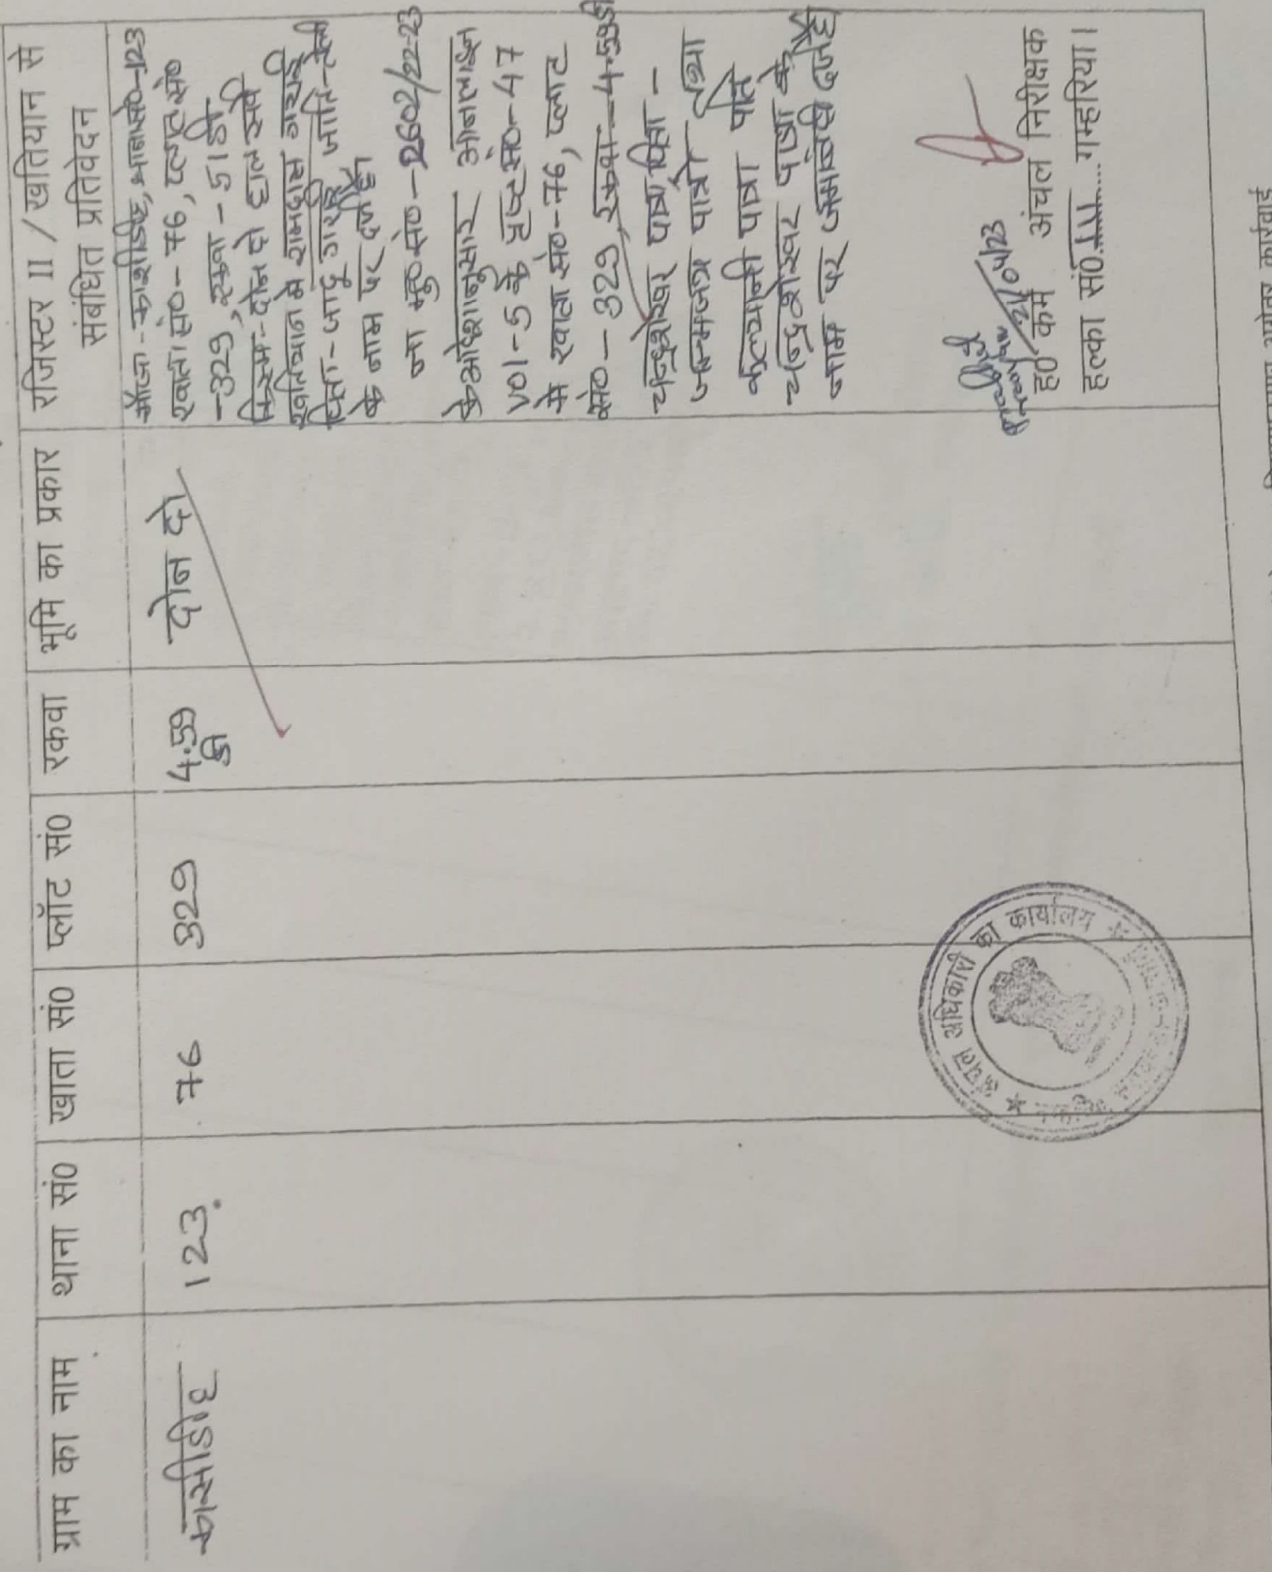 ग्राम का नाम थाना सं0 खाता सं0 प्लॉट सं0 रकवा भूमि का प्रकार रजिस्टर II / खतियान से
संबंधित प्रतिवेदन
कासीडीह 123 76 329 4.59 डी दोन दो
मौजा - काशीडीह, थाना सं०-123
खाता सं०- 76, प्लाट सं०
-329, रकवा - 51 डी
किस्म - दोन दो हाल सर्वे
खतियान में रामदास
पिता - जादू जाति - तेली
के नाम पर दर्ज है।
ना० मु० सं० - 2602/22-23
के आदेशानुसार ऑनलाइन
Vol-5 के पृष्ठ सं०-47
में खाता सं०-76, प्लाट
सं० - 329, रकवा - 4.59 डी
चन्द्रशेखर पात्रा पिता -
जन्मजय पात्रो तथा
कल्यानी पात्रा पति
चन्द्रशेखर पात्रा के
नाम पर जमाबंदी दर्ज है
21/04/23
ह0 कर्म0 अंचल निरीक्षक
हल्का सं0 IV गम्हरिया।
अंचल अधिकारी का कार्यालय